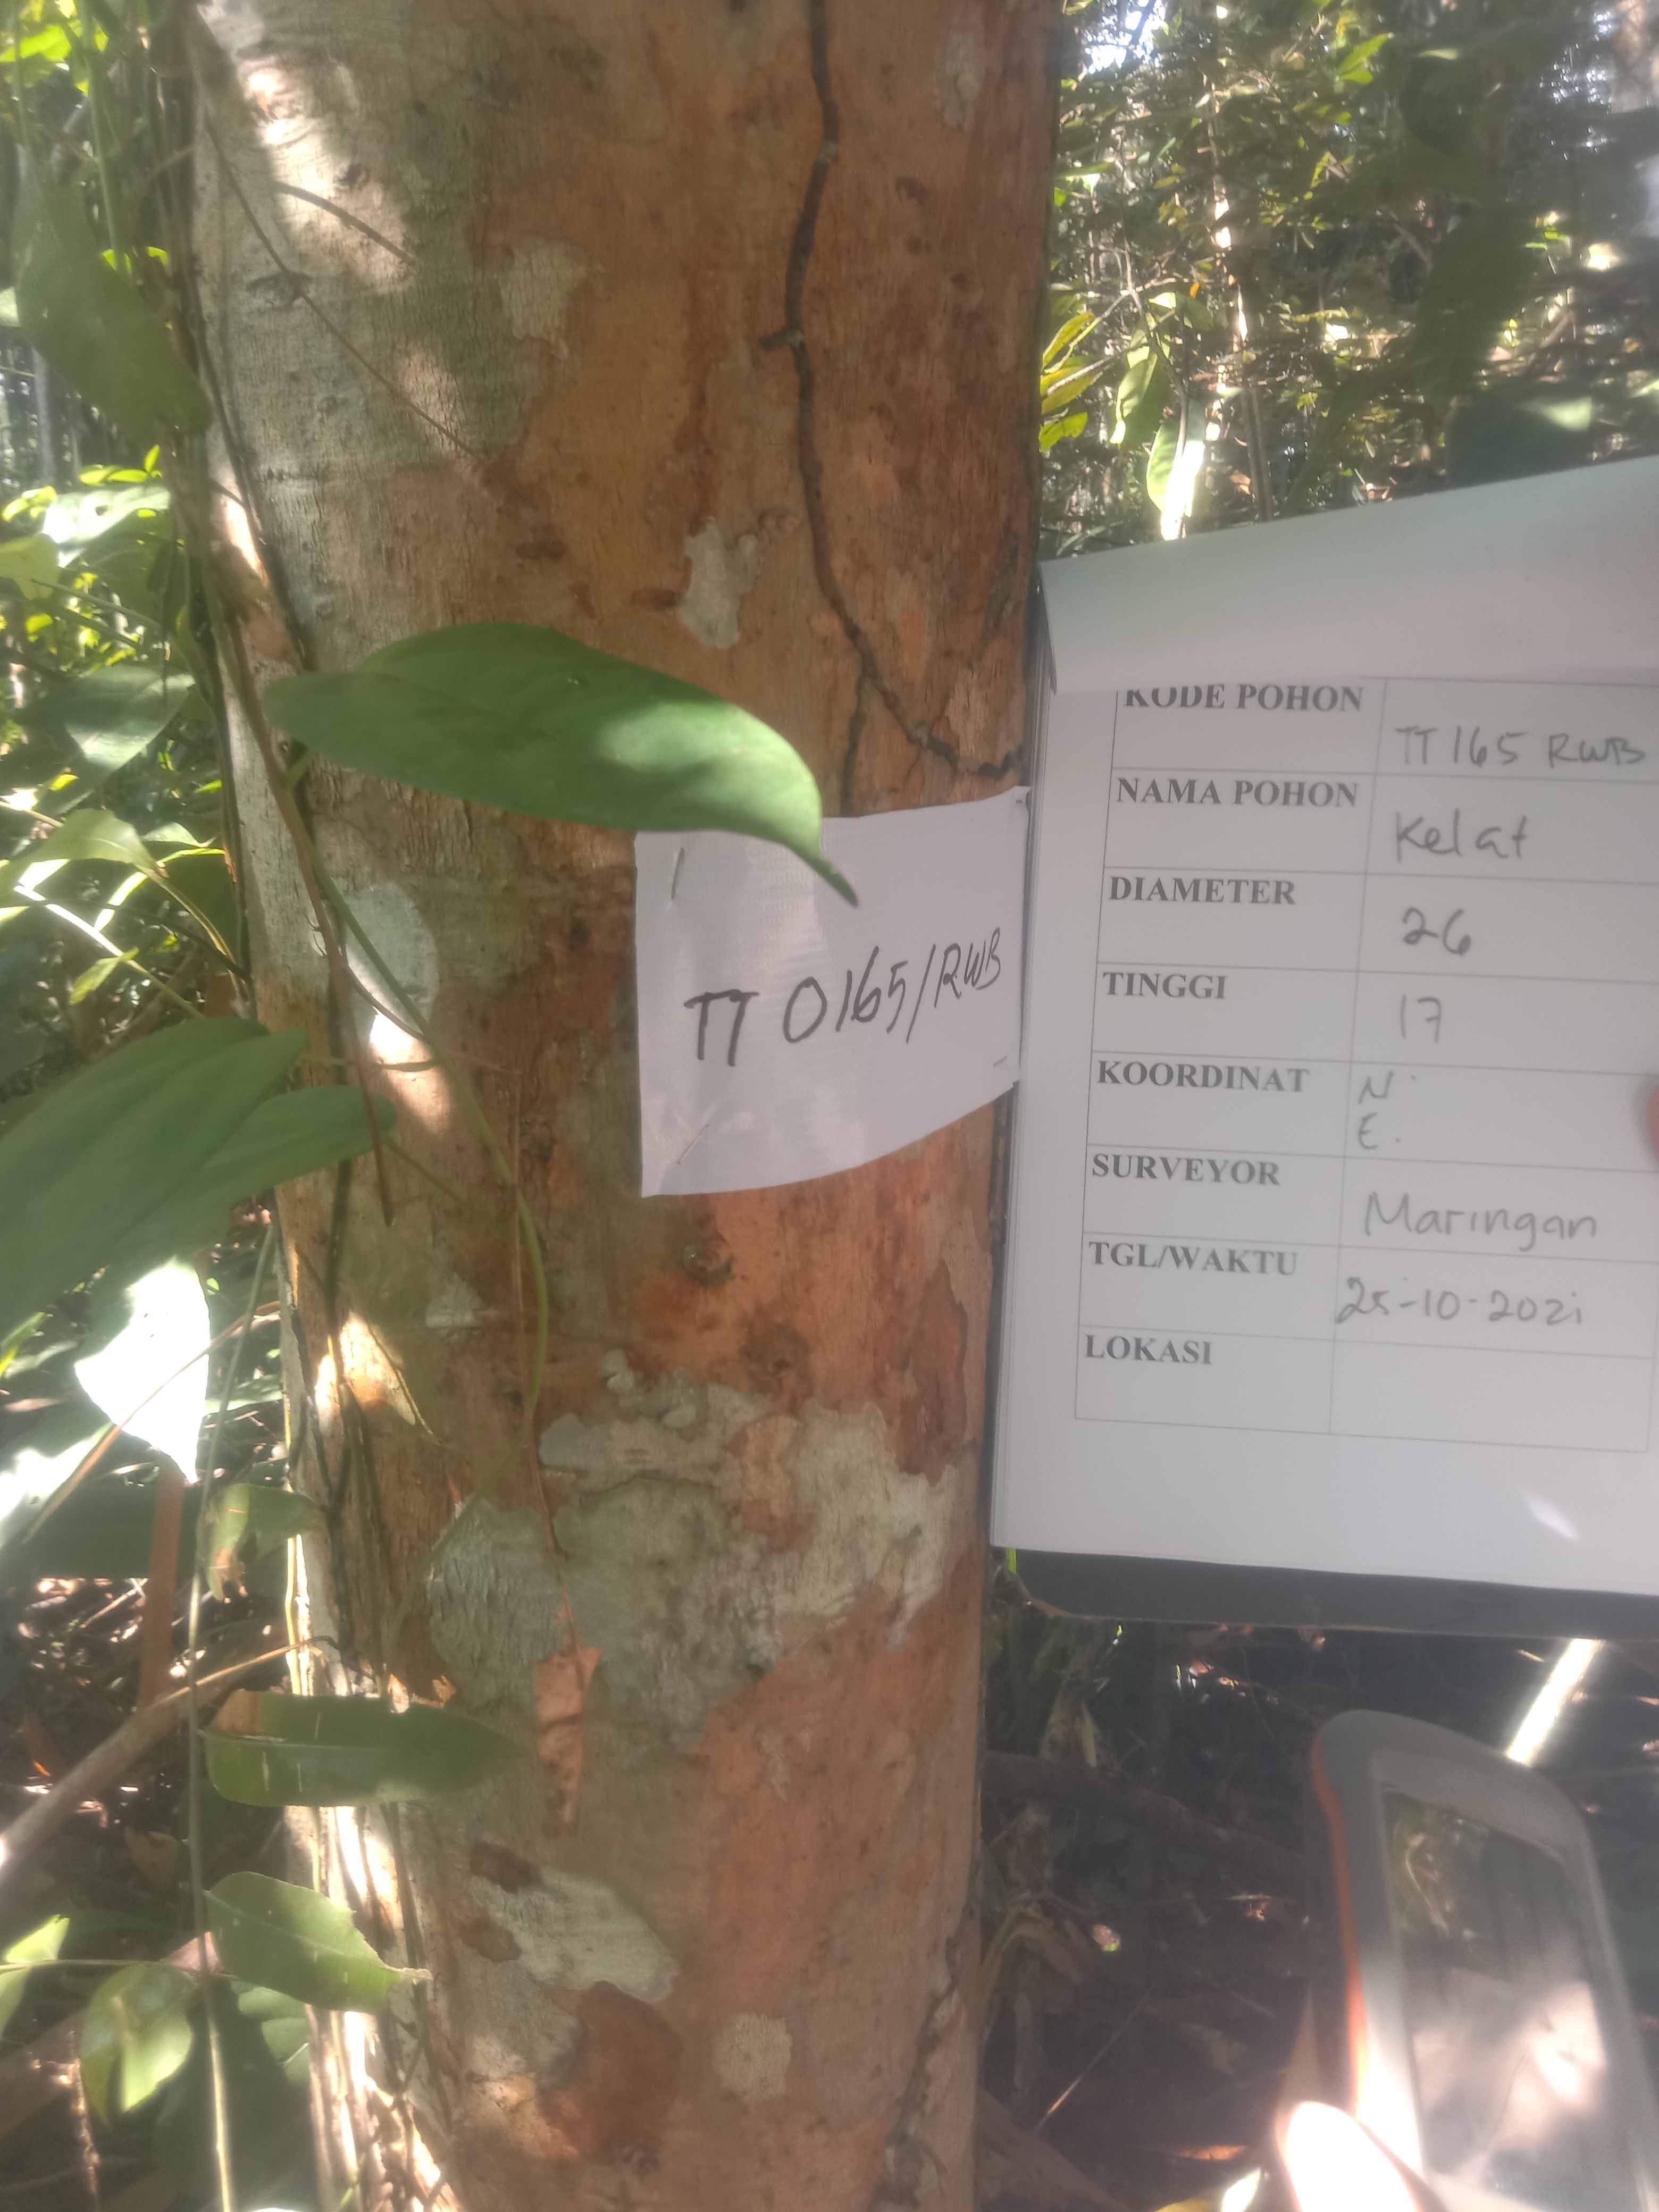 TT 0165/RWB
KODE POHON TT 165 RWB
NAMA POHON Kelat
DIAMETER 26
TINGGI 17
KOORDINAT N
E.
SURVEYOR Maringan
TGL/WAKTU 25-10-2021
LOKASI